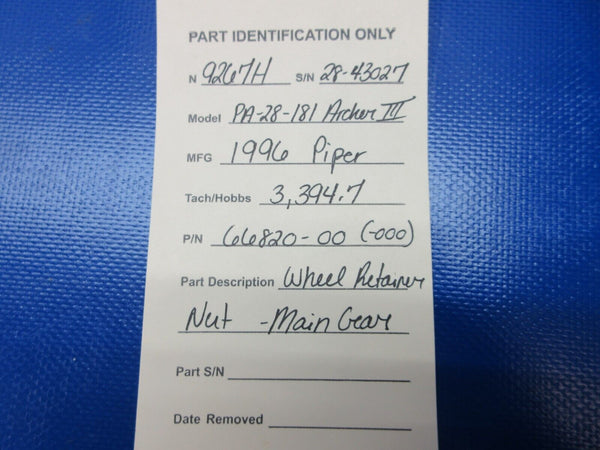 PART IDENTIFICATION ONLY
N 9267H S/N 28-43027
Model PA-28-181 Archer III
MFG 1996 Piper
Tach/Hobbs 3,394.7
P/N 66820-00 (-000)
Part Description Wheel Retainer
Nut - Main Gear
Part S/N
Date Removed